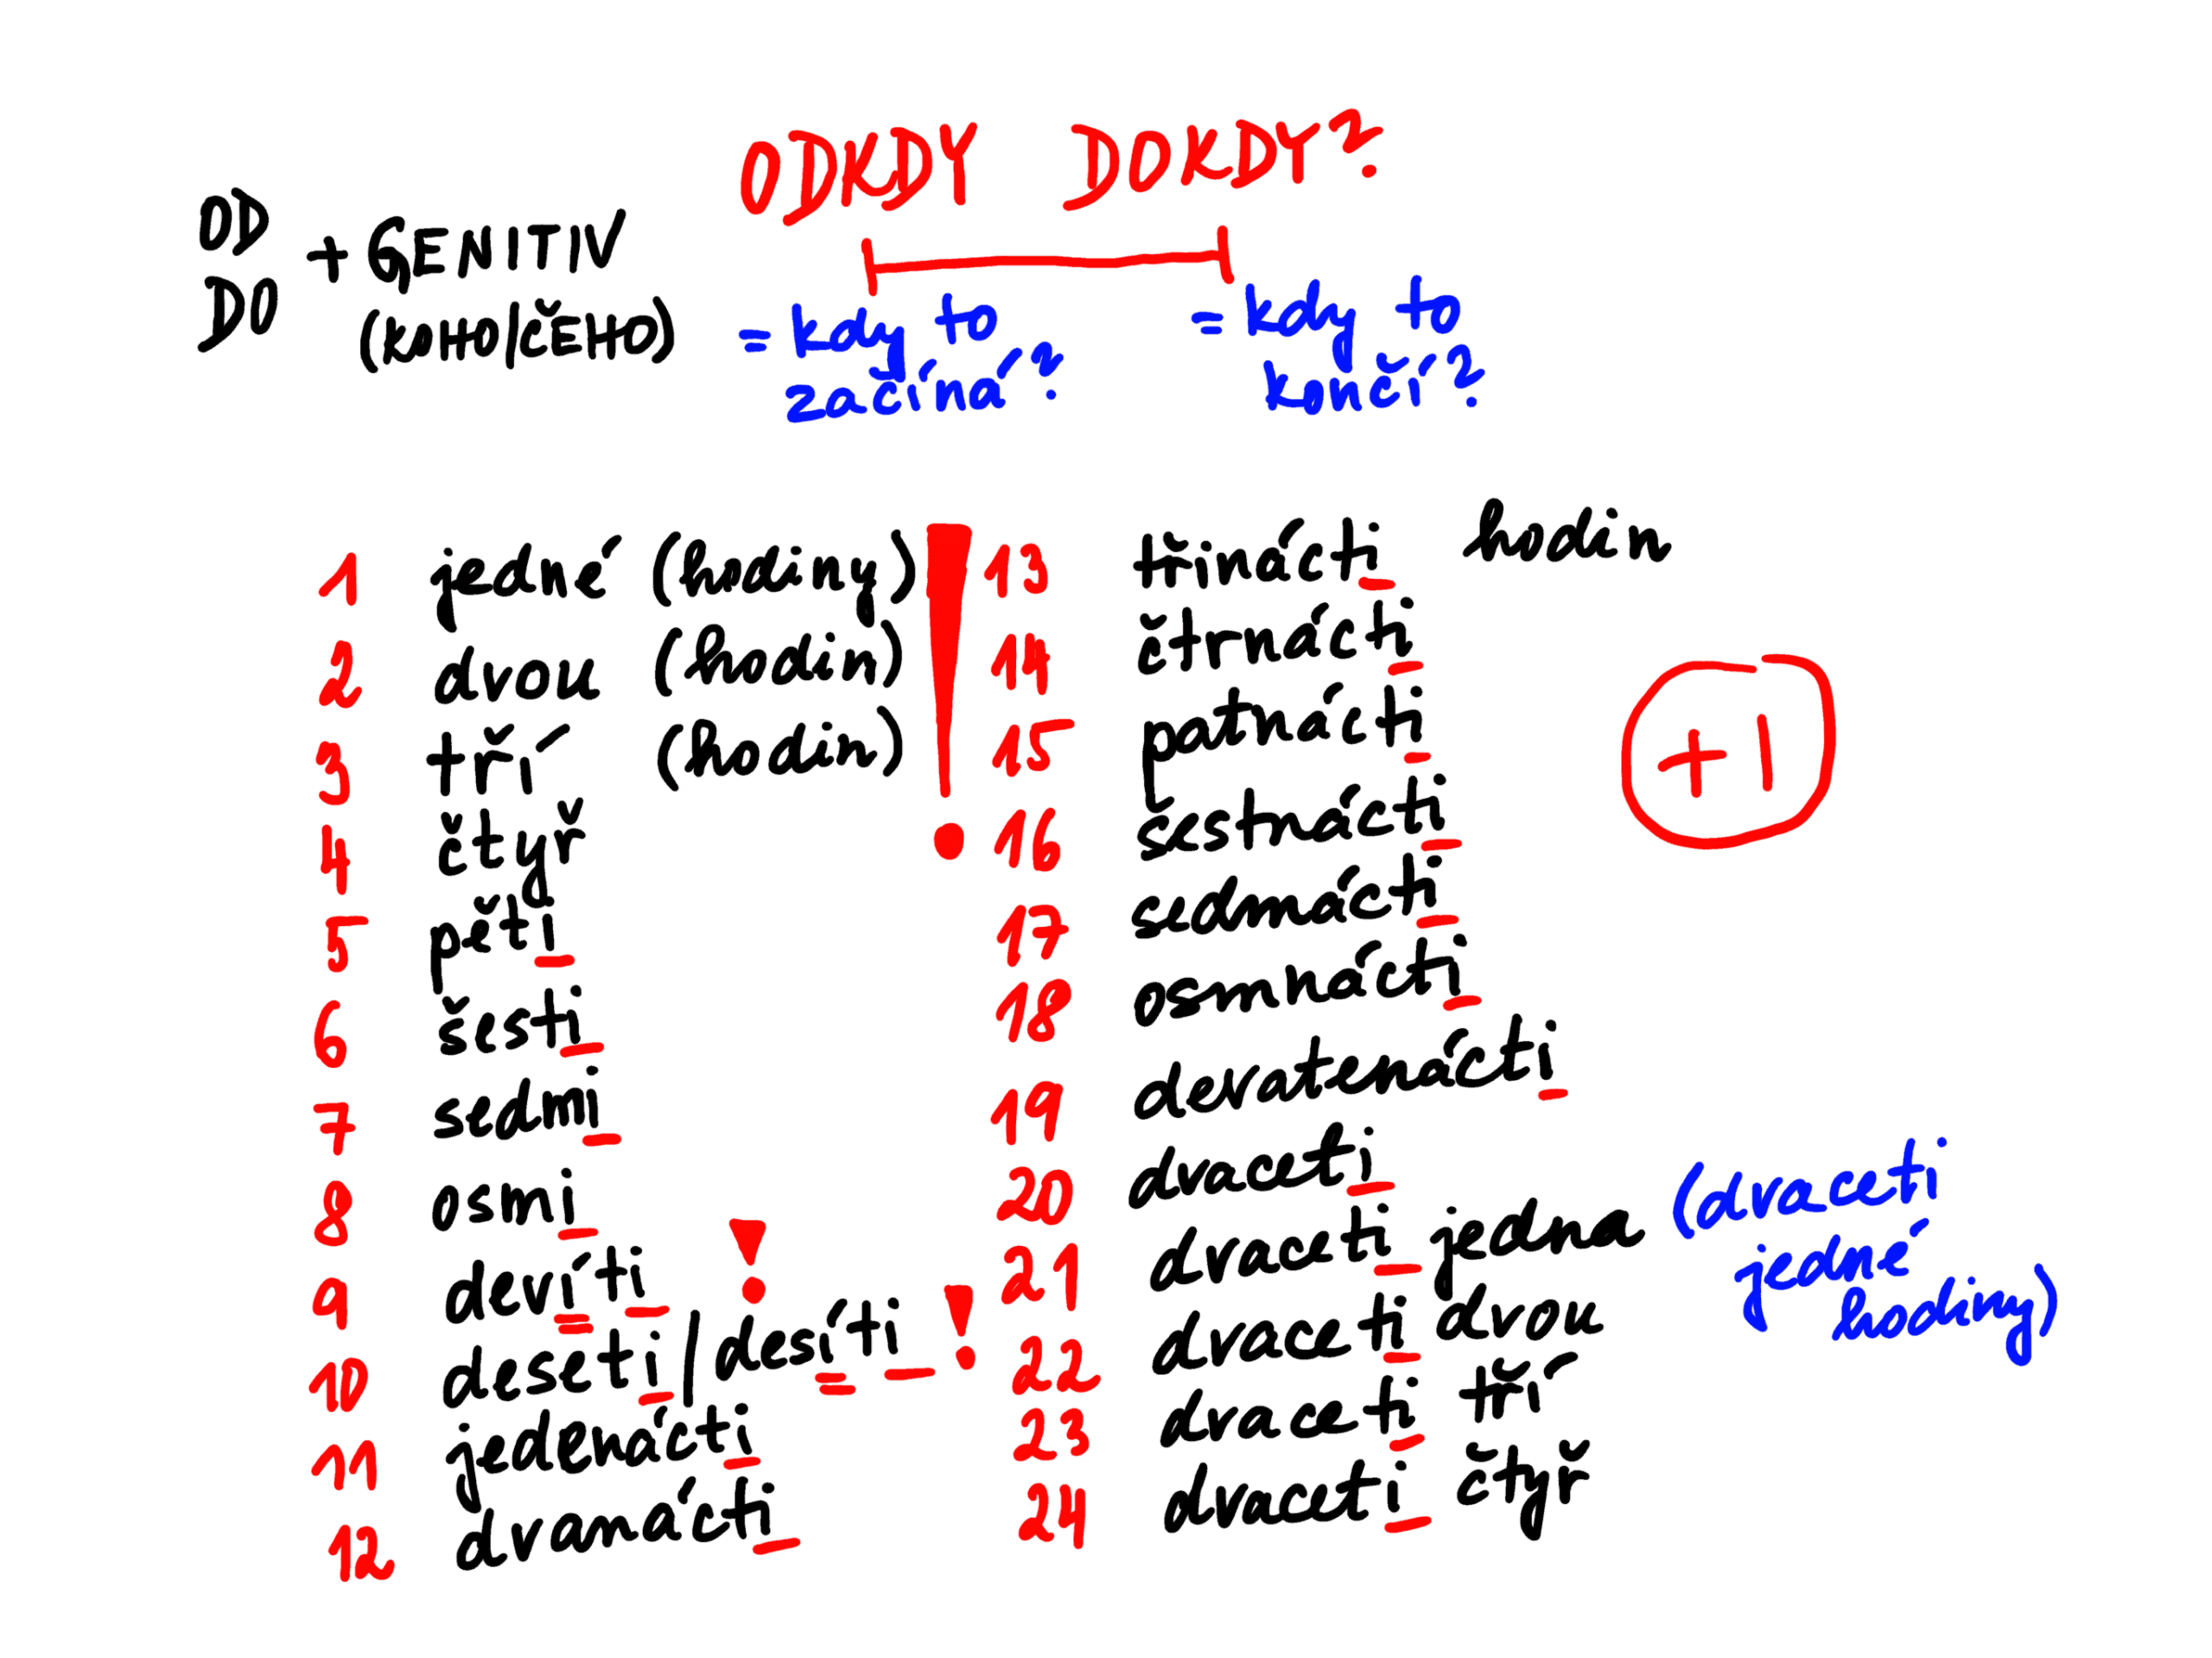 ODKDY DOKDY?
OD
DO
+ GENITIV
(KOHO/ČEHO)
= kdy to
začíná?
= kdy to
končí?
1 jedné (hodiny)
2 dvou (hodin)
3 tří (hodin)
4 čtyř
5 pěti
6 šesti
7 sedmi
8 osmi
9 devíti !
10 deseti/desíti !
11 jedenácti
12 dvanácti
!
13 třinácti hodin
14 čtrnácti
15 patnácti
16 šestnácti
17 sedmácti
18 osmnácti
19 devatenácti
20 dvaceti
21 dvaceti jedna (dvaceti
jedné
hodiny)
22 dvaceti dvou
23 dvaceti tří
24 dvaceti čtyř
+1